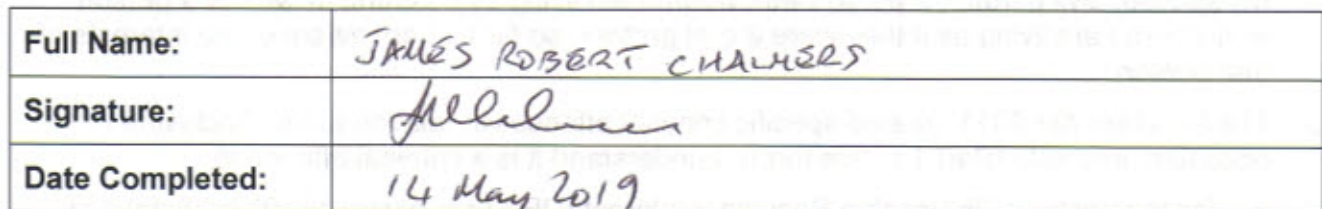 Full Name: JAMES ROBERT CHALMERS
Signature:
Date Completed: 14 May 2019